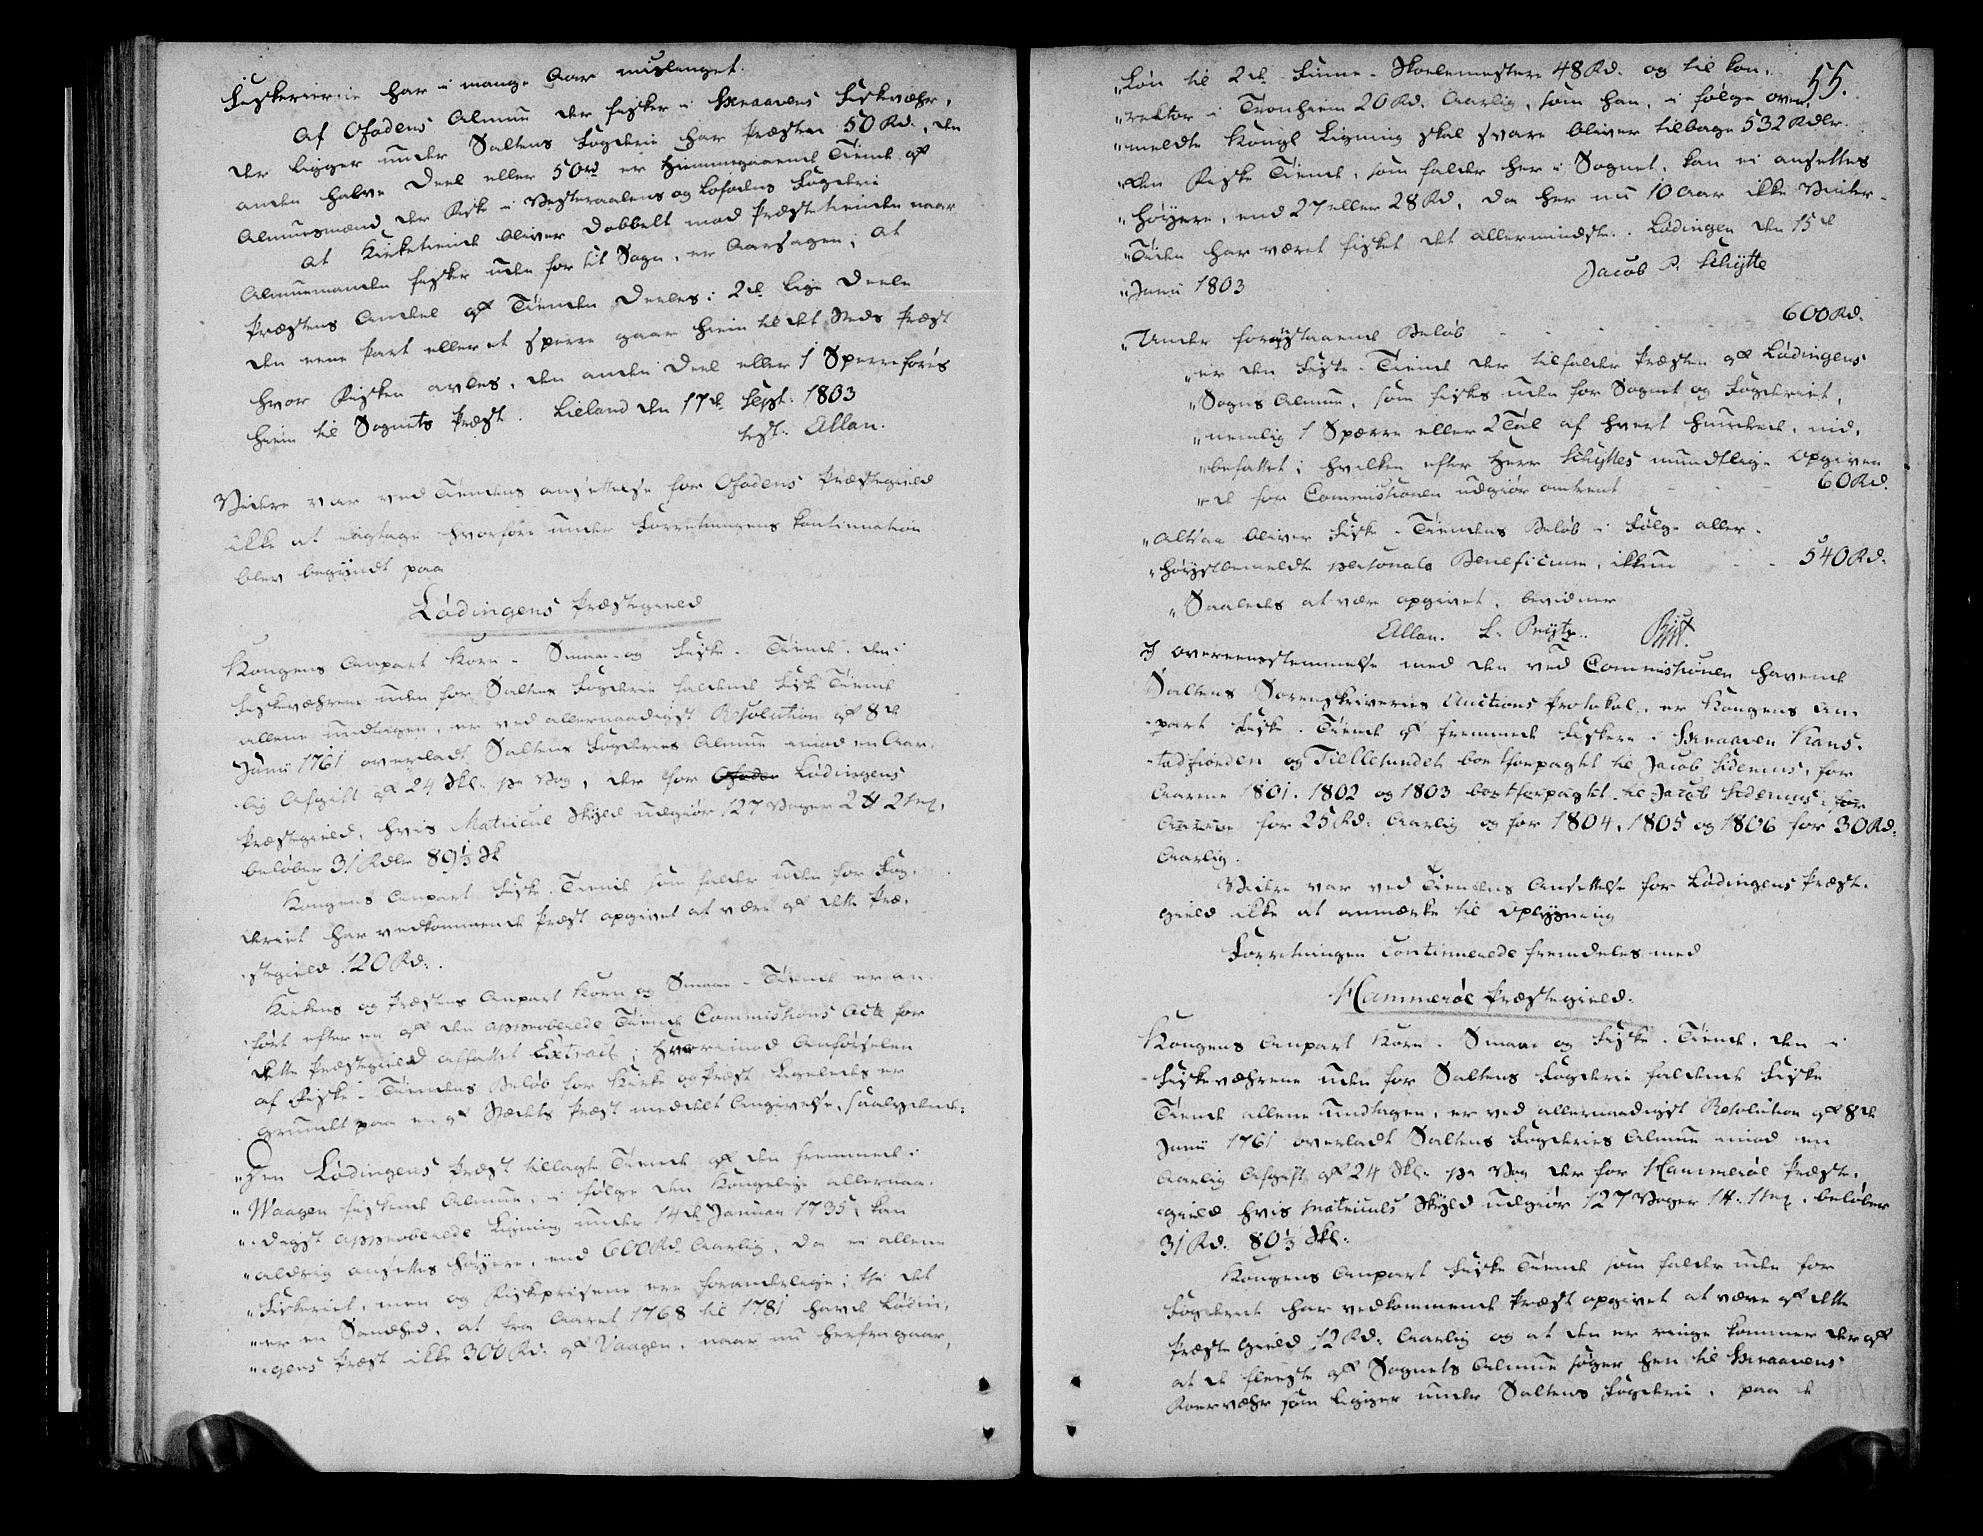 Fiskerierne har i mange Aar mislinget.
Af Ofodens Almue der fisker i Skraavens Fiskevæhr,
der ligger under Saltens Fogderie har Præsten 50 Rd., den
anden halve Deel eller 50rd er hiemmegaaende Tiende af
Almuesmænd, der fisk i Westeraalens og Lofodens Fogderie
At Kirketiende bliver dobbelt mod Præstetienden naar
Almuemanden fisker uden for sit Sogn, er Aarsagen; at
Præstens Andeel af Tienden deeles i 2de lige Deele
den eene Part eller et Sperre gaar hiem til det Steds Præst
hvor Fisken avles, den anden Deel eller 1 Sperre føres
hiem til Sognets Præst. Lieland den 17de Sept: 1803
test: Ellan.
Videre var ved Tiendens ansættelse for Ofodens Præstegield
ikke at iagtage hvorfore under Forretningens Continuation
blev begyndt paa
Lødingens Præstegield
Kongens Anpart Korn- Smaae- og Fiske-Tiende, den i
Fiskeværene uden for Saltens Fogderie faldende Fiske Tiende
allene undtagen, er ved allernaadigst Resolution af 8de
Junii 1761 overladt Saltens Fogderies Almue imod en Aar-
lig Afgift af 24 Skl: pr Vog, der for Ofoden Lødingens
Præstegield, hvis Matricul Skyld udgiør 127 Voger 2 ℔ 2 mk,
beløber 31 Rdlr 89⅓ Sk
Kongens Anpart Fiske-Tiende som falder uden for Fog-
deriet har vedkommende Præst opgivet at være af dette Præ-
stegield 120 Rd:
Kirkens og Præstens Anpart Korn og Smaae-Tiende er an-
ført efter en af den approberede Tiende Commissions Acte for
dette Præstegield forfattet Extract; hvorimod Anførselen
af Fiske-Tiendens Beløb for Kirke og Præst ligeledes er
grundet paa en af Stedets Præst meddelt Angivelse, saalydende:
"Den Lødingens Præst tillagte Tiende af den fremmede i
"Waagen fiskende Almue, i følge den Kongelige allernaa-
"digst approberede Ligning under 14de Januar 1735, kan
"aldrig ansættes høyere, end 600 Rd Aarlig, da ei allene
"Fiskeriet, men og Fiskepriserne ere foranderlige; thi det
"er en Sandhed, at fra Aaret 1768 til 1781 havde Lødin-
"gens Præst ikke 300 Rd: af Vaagen, naar nu herfra gaar,
55.
"Løn til 2de Finne-Skolemestere 48 Rd. og til Con-
"rektor i Tronhiem 20 Rd. Aarlig, som han, i følge oven-
"meldte Kongl Ligning skal svare bliver tilbage 532 Rdlr.
"Den Fiske Tiende, som falder her i Sognet, kan ei ansættes
"høyere, end 27 eller 28 Rd, da her nu 10 Aar ikke Vinter-
"Tiden har været fisket det allermindste. Lødingen den 15de
"Junii 1803
Jacob P. Schytte
"Under forestaaende Beløb - - - - 600 Rd.
"er den Fiske-Tiende der tilfalder Præsten af Lødingens
"Sogns Almue, som fiske uden for Sognet og Fogderiet,
"nemlig 1 Sperre eller 2 Tal af hvert hundrede, ind-
"befattet; hvilken efter Herr Schyttes mundtlige Opgiven-
"de for Commissionen udgiør omtrent - - - 60 Rd.
"Altsaa bliver Fiske-Tiendens Beløb i Følge aller-
"høystbemeldte personale Beneficium, ikkun - - 540 Rd.
"Saaledes at være opgivet, bevidner
Ellan. L. Krists.
I overeensstemmelse med den ved Commissionen havende
Saltens Sorenskriveries Auctions Protokol, er Kongens An-
part Fiske-Tiende af fremmede Fiskere i Skraaven Kans-
tadfiorden og Tiellesundet bortforpagtet til Jacob Sidenius, for
Aarene 1801. 1802 og 1803 bortforpagtet til Jacob Sidenius, for
Aarene for 25 Rd: Aarlig og for 1804, 1805 og 1806 for 30 Rd:
Aarlig.
Videre var ved Tiendens Ansættelse for Lødingens Præste-
gield ikke at anmærke til Oplysning
Forretningen Continuerede fremdeles med
Hammerøe Præstegield.
Kongens Anpart Korn- Smaae og Fiske-Tiende, den i
Fiskeværene uden for Saltens Fogderie faldende Fiske
Tiende allene undtagen, er ved allernaadigst Resolution af 8de
Junii 1761 overladt Saltens Fogderies Almue imod en
Aarlig Afgift af 24 Skl: pr Vog der for Hammerøe Præste-
gield hvis Matriculs Skyld udgiør 127 Voger 1 ℔. 1 mk. beløber
31 Rd. 80⅓ Skl:
Kongens Anpart Fiske Tiende som falder uden for
Fogderiet har vedkommende Præst opgivet at være af dette
Præstegield 12 Rd: Aarlig og at den er ringe kommer der af
at de fleeste af Sognets Almue søger hen til Skraavens
Roerværhr som ligger under Saltens Fogderie, paa de